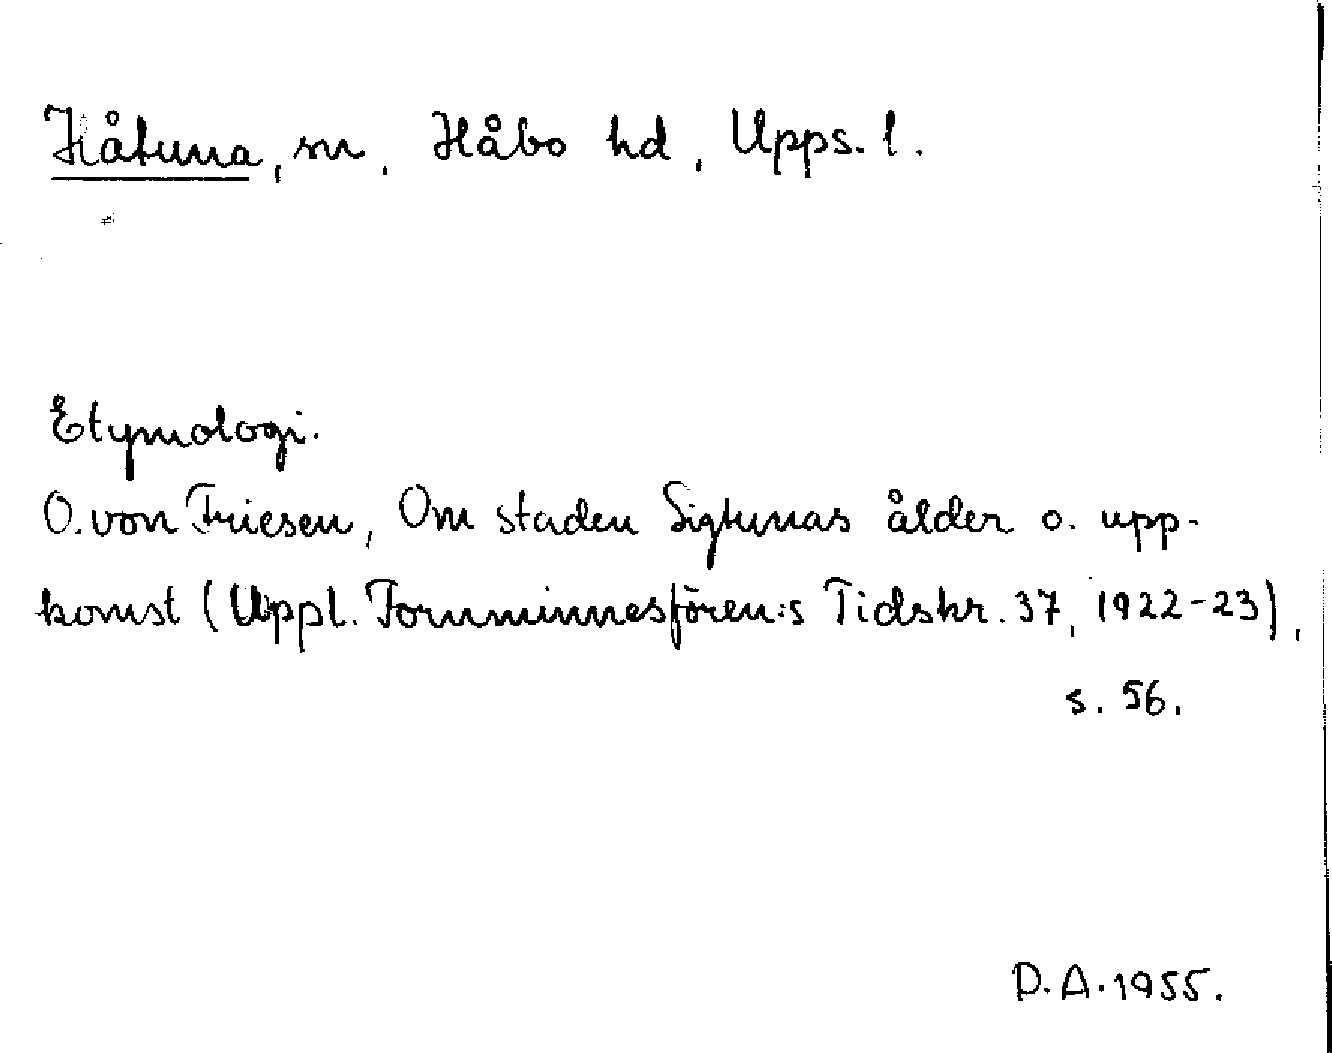 Håtuna, sn, Håbo hd, Upps. l.
Etymologi.
O. von Friesen, Om staden Sigtunas ålder o. upp-
komst (Uppl. Fornminnesfören:s Tidskr. 37, 1922-23),
s. 56.
D. A. 1955.